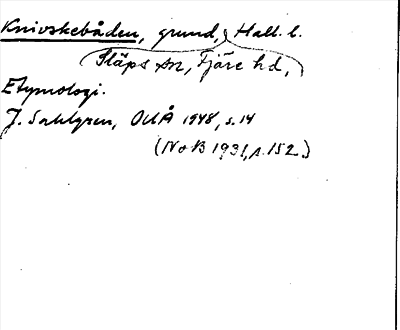 Knivskebåden, grund, Hall. l.
Släps sn, Fjäre hd,
Etymologi.
J. Sahlgren, OUÅ 1948, s. 14
(NoB 1931, s. 152.)